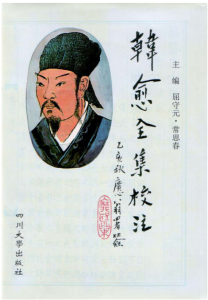 主编 屈守元·常思春
韓愈全集校注
乙亥秋
四川大學出版社